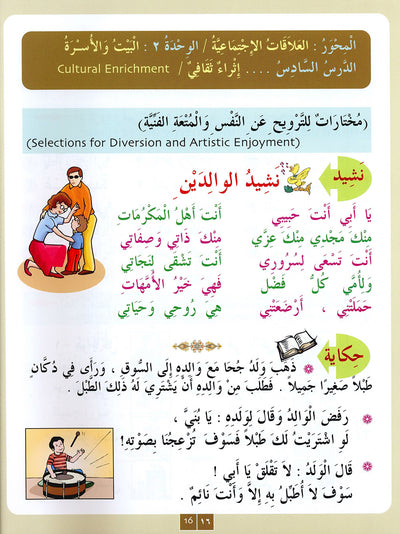 الْمِحْوَرُ : العَلاَقَاتُ الإِجْتِمَاعِيَّةُ / الوِحْدَةُ ٢ : الْبَيْتُ وَالأُسْرَةُ
الدَّرسُ السَّادِسُ .... إِثْرَاءٌ ثَقَافِيٌّ / Cultural Enrichment
(مُخْتَارَاتٌ لِلتَّرْوِيحِ عَنِ النَّفْسِ وَالْمُتْعَةِ الفَنِّيَّةِ)
(Selections for Diversion and Artistic Enjoyment)
نَشِيد
نَشِيدُ الوالِدَيْنِ
يَا أَبِي أَنْتَ حَبِيبِي أَنْتَ أَهْلُ الْمَكْرُمَاتِ
مِنْكَ مَجْدِي مِنْكَ عِزِّي مِنْكَ ذَاتِي وَصِفَاتِي
أَنْتَ تَسْعَى لِسُرُورِي أَنْتَ تَشْقَى لِنَجَاتِي
وَلأُمِّي كُلُّ فَضْلٍ فَهِيَ خَيْرُ الأُمَّهَاتِ
حَمَلَتْنِي ، أَرْضَعَتْنِي هِيَ رُوحِي وَحَيَاتِي
حِكاية
ذَهَبَ وَلَدُ جُحَا مَعَ وَالِدِهِ إِلَى السُّوقِ ، وَرَأَى فِي دُكَّانٍ
طَبْلاً صَغِيرًا جَمِيلاً . فَطَلَبَ مِنْ وَالِدِهِ أَنْ يَشْتَرِيَ لَهُ ذَلِكَ الطَّبْلَ .
رَفَضَ الْوَالِدُ وَقَالَ لِوَلَدِهِ : يَا بُنَيَّ ،
لَوِ اشْتَرَيْتُ لَكَ طَبْلاً فَسَوْفَ تُزْعِجُنَا بِصَوْتِهِ!
قَالَ الْوَلَدُ : لاَ تَقْلَقْ يَا أَبِي !
سَوْفَ لاَ أُطَبِّلُ بِهِ إِلاَّ وَأَنْتَ نَائِمٌ .
16 ١٦